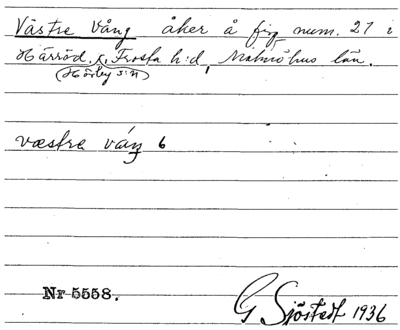 Västre Vång åker å fig num. 27 i
Härröd, Frosta h:d, Malmöhus län.
(Hörby s:n)
væstra váŋ 6
Nr 5558.
G Sjöstedt 1936